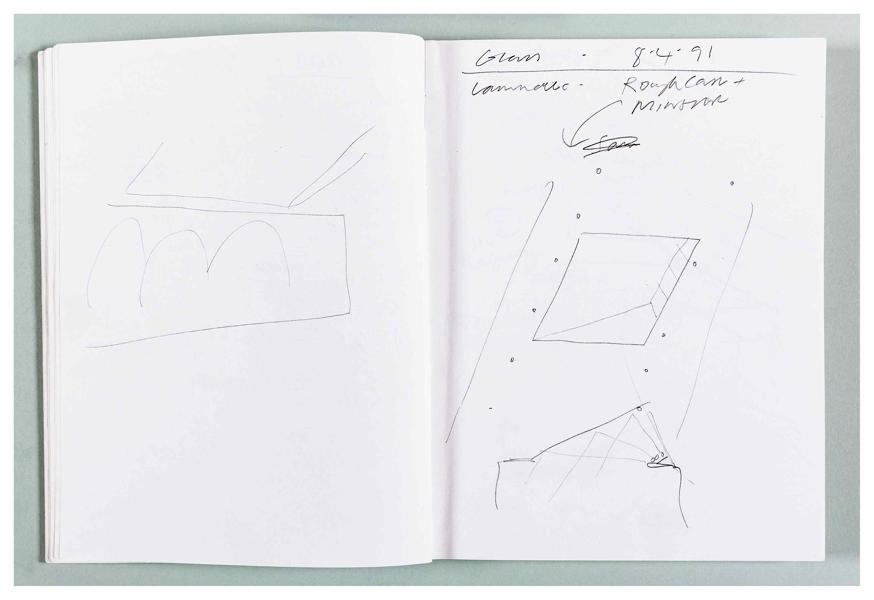 Glass - 8.4.91
Laminate - Rough Cast +
Mirror